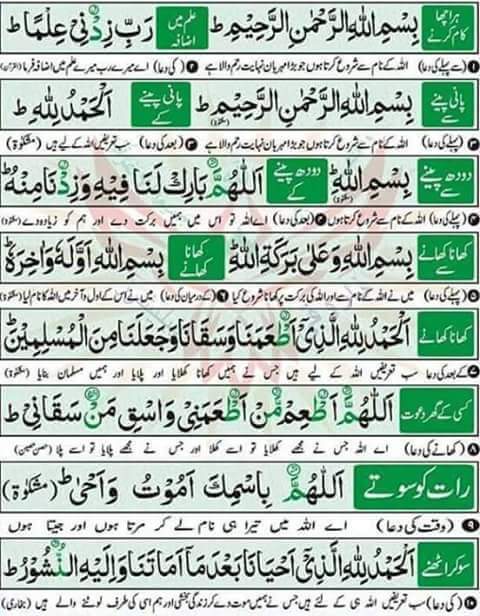 ہر اچھا کام کرنے بِسْمِ اللهِ الرَّحْمٰنِ الرَّحِيْمِ ط علم میں اضافہ رَبِّ زِدْنِيْ عِلْمًا ط
۱ (سے پہلے کی دعا) اللہ کے نام سے شروع کرتا ہوں جو بڑا مہربان نہایت رحم والا ہے ۲ (کی دعا) اے میرے رب میرے علم میں اضافہ فرما (القرآن)
پانی پینے سے بِسْمِ اللهِ الرَّحْمٰنِ الرَّحِيْمِ ط پانی پینے کے اَلْحَمْدُ لِلّٰهِ ط
(پہلے کی دعا) اللہ کے نام سے شروع کرتا ہوں جو بڑا مہربان نہایت رحم والا ہے (بعد کی دعا) سب تعریفیں اللہ کے لیے ہیں (مشکوٰۃ)
دودھ پینے سے بِسْمِ اللهِ ط دودھ پینے کے اَللّٰهُمَّ بَارِكْ لَنَا فِيْهِ وَزِدْنَا مِنْهُ ط
(پہلے کی دعا) اللہ کے نام سے شروع کرتا ہوں (بعد کی دعا) اے اللہ تو اس میں ہمیں برکت دے اور ہم کو زیادہ دے (مشکوٰۃ)
کھانا کھانے سے بِسْمِ اللهِ وَعَلٰى بَرَكَةِ اللهِ کھانا کھانے بِسْمِ اللهِ اَوَّلَهٗ وَاٰخِرَهٗ ط
۵ (پہلے کی دعا) میں نے اللہ کے نام سے اور اللہ کی برکت پر کھانا شروع کیا ۶ (کے درمیان کی دعا) میں نے اس کے اول و آخر میں اللہ کا نام لیا (مشکوٰۃ)
کھانا کھانے اَلْحَمْدُ لِلّٰهِ الَّذِيْ اَطْعَمَنَا وَسَقَانَا وَجَعَلَنَا مِنَ الْمُسْلِمِيْنَ ط
۷ کے بعد کی دعا) سب تعریفیں اللہ کے لیے ہیں جس نے ہمیں کھانا کھلایا اور پلایا اور ہمیں مسلمان بنایا (مشکوٰۃ)
کسی کے گھر دعوت اَللّٰهُمَّ اَطْعِمْ مَّنْ اَطْعَمَنِيْ وَاسْقِ مَنْ سَقَانِيْ ط
۸ (کھانے کی دعا) اے اللہ جس نے مجھے کھلایا تو اسے کھلا اور جس نے مجھے پلایا تو اسے پلا (حصن حصین)
رات کو سوتے اَللّٰهُمَّ بِاسْمِكَ اَمُوْتُ وَاَحْيٰى ط (مشکوٰۃ)
۹ (وقت کی دعا) اے اللہ میں تیرا ہی نام لے کر مرتا ہوں اور جیتا ہوں
سو کر اٹھنے اَلْحَمْدُ لِلّٰهِ الَّذِيْ اَحْيَانَا بَعْدَ مَا اَمَاتَنَا وَاِلَيْهِ النُّشُوْرُ ط
۱۰ (کی دعا) سب تعریفیں اللہ ہی کے لئے ہیں جس نے ہمیں موت دے کر زندگی بخشی اور ہم اسی کی طرف لوٹنے والے ہیں (بخاری)